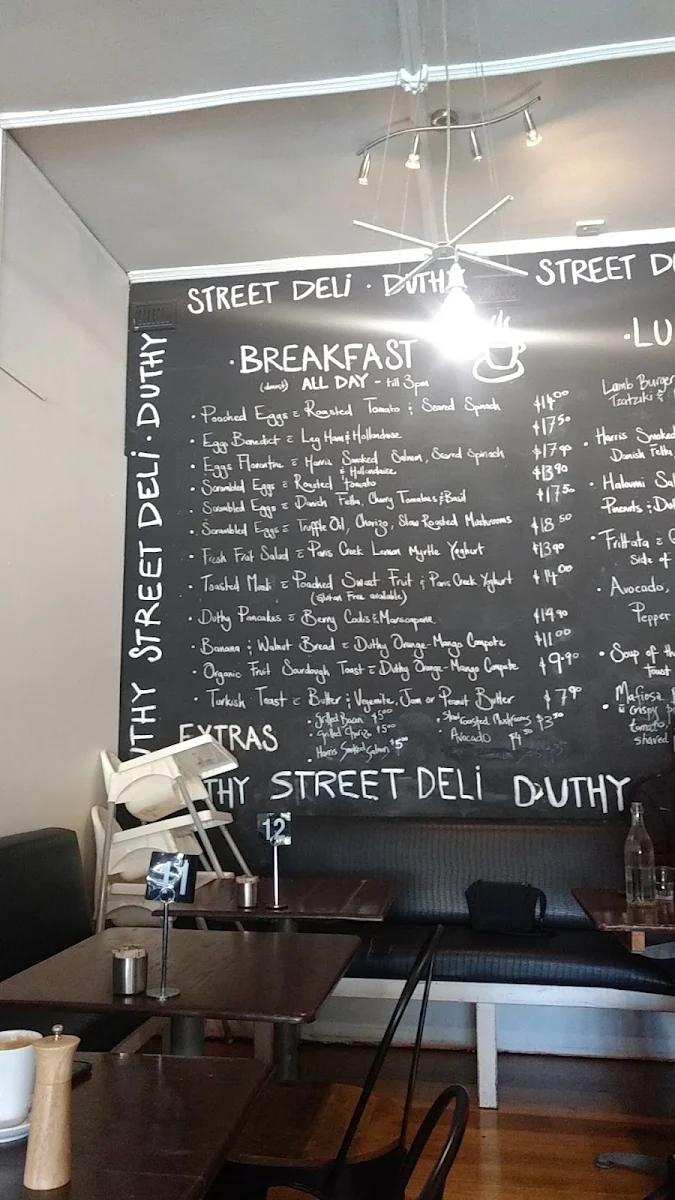 STREET DELI · DUTHY
STREET
DUTHY STREET DELI · DUTHY
· BREAKFAST
ALL DAY - till 3pm
· Poached Eggs c Roasted Tomato & Seared Spinach $14.00
· Egg Benedict c Leg Ham & Hollandaise $17.50
· Eggs Florentine c Harris Smoked Salmon, Seared Spinach & Hollandaise $17.90
· Scrambled Eggs c Roasted tomato $13.90
· Scrambled Eggs c Danish Fetta, Cherry Tomatoes & Basil $17.50
· Scrambled Eggs c Truffle Oil, Chorizo, Slow Roasted Mushrooms $18.50
· Fresh Fruit Salad c Paris Creek Lemon Myrtle Yoghurt $13.90
· Toasted Muesli c Poached Sweet Fruit & Paris Creek Yoghurt $14.00
(Gluten Free available)
· Duthy Pancakes c Berry Coulis & Marscapone $14.90
· Banana & Walnut Bread c Duthy Orange-Mango Compote $11.00
· Organic Fruit Sourdough Toast c Duthy Orange-Mango Compote $9.90
· Turkish Toast c Butter & Vegemite, Jam or Peanut Butter $7.90
EXTRAS
· Grilled Bacon $5.00
· Grilled Chorizo $5.00
· Harris Smoked Salmon $5
· Slow Roasted Mushrooms $3.50
Avocado $4.50
THY STREET DELI DUTHY
· LU
Lamb Burger
Tzatziki &
· Harris Smoked
Danish Fetta,
· Haloumi Sal
· Frittata c
Side of
· Avocado,
Pepper
· Soup of th
Toast
· Mafiosa
c crispy
tomato,
shaved
12
11